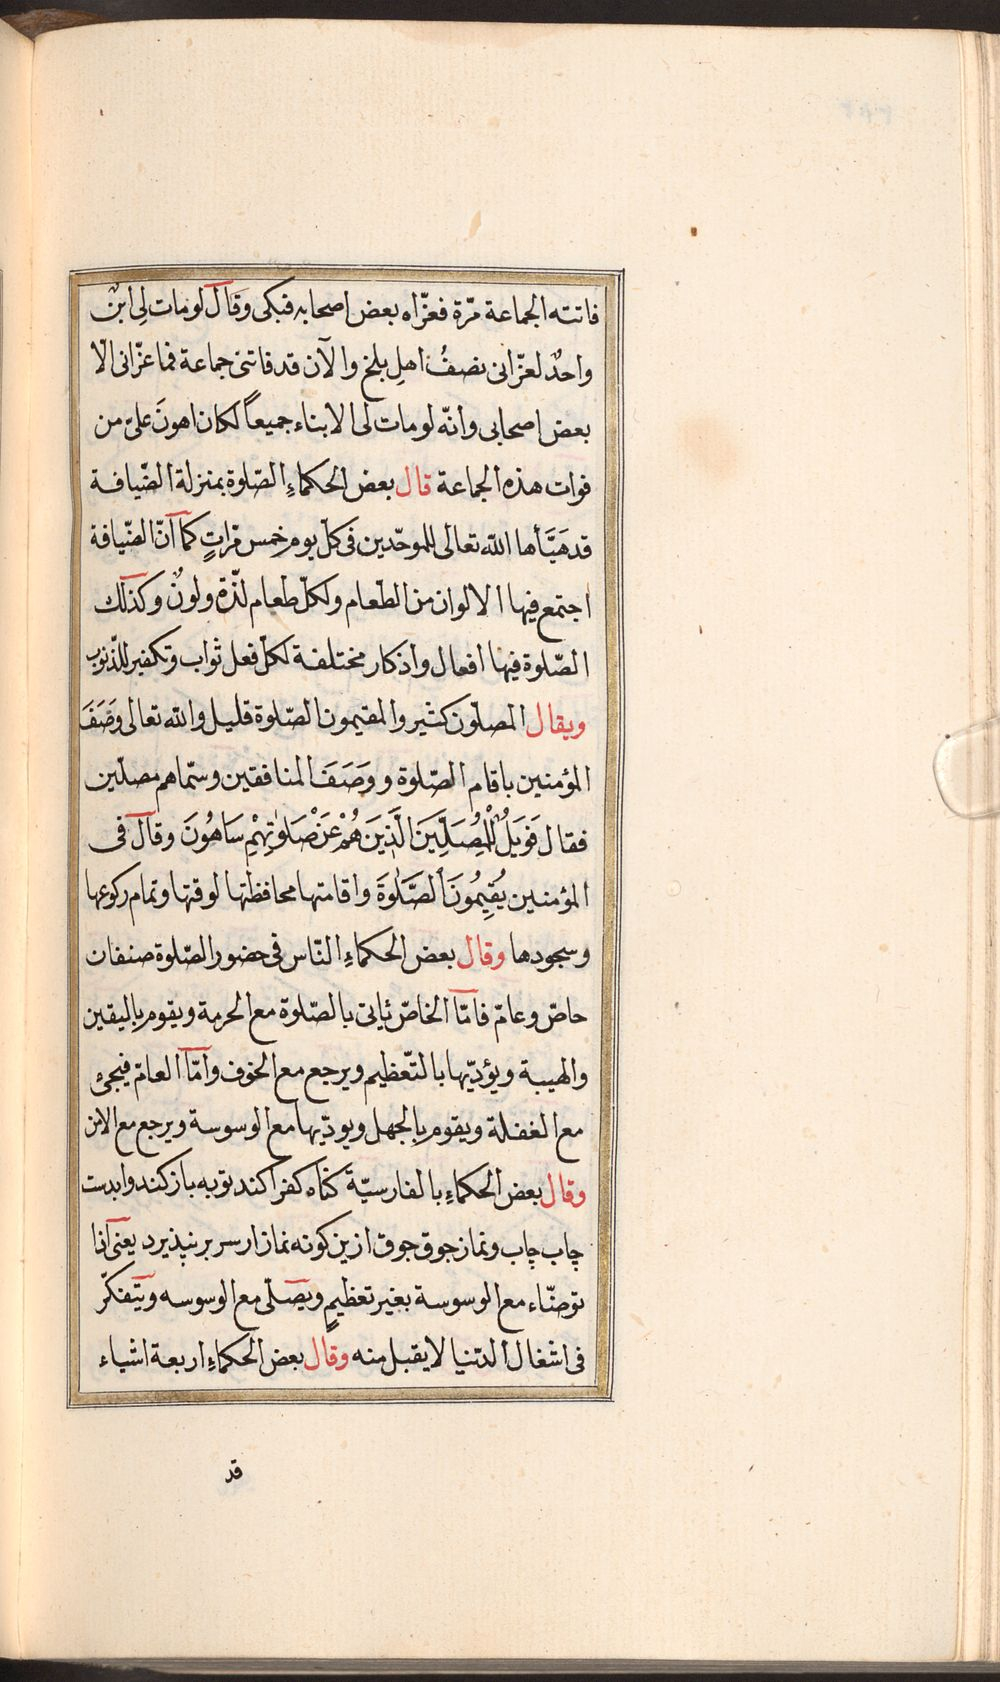 فاتته الجماعة مّرة فعزّاه بعض اصحابه فبكى وقال لو مات لى ابنٌ
واحدٌ لعزّانى نصفُ اهلِ بلخ والآن قد فاتتنى جماعة فما عزّانى الّا
بعض اصحابى وانّه لو مات لى الابناء جميعاً لكان اهونَ علىّ من
فوات هذه الجماعة قال بعض الحكماءِ الصّلوة بمنزلة الضّيافة
قد هَيَّأها الله تعالى للموحّدين فى كلّ يوم خمس مّراتٍ كما انّ الضّيافة
اجتمع فيها الالوان من الطّعام ولكلّ طعام لذّة ولونٌ وكذلك
الصّلوة فيها افعال واذكار مختلفة لكلّ فعل ثواب وتكفير للذّنوب
ويقال المصلّون كثير والمقيمون الصّلوة قليل والله تعالى وصَفَ
المؤمنين باقام الصّلوة ووَصَفَ المنافقين وسمّاهم مصلّين
فقال فَوَيْلٌ لِلْمُصَلّينَ الَّذِينَ هُمْ عَنْ صَلٰوتِهِمْ سَاهُونَ وقال فى
المؤمنين يُقِيمُونَ الصَّلٰوةَ واقامتها محافظتها لوقتها وتمام ركوعها
وسجودها وقال بعض الحكماءِ النّاس فى حضور الصّلوة صنفان
خاصّ وعامّ فامّا الخاصّ يأتى بالصّلوة مع الحرمة ويقوم باليقين
والهيبة ويؤدّيها بالتّعظيم ويرجع مع الخوف وامّا العامّ فيجئ
مع الغفلة ويقوم بالجهل ويودّيها مع الوسوسة ويرجع مع الامن
وقال بعض الحكماءِ بالفارسيّة كناه كفرا كند توبه باز كند وابدست
چاب چاب ونماز جوق جوق ازين كونه نماز از سر بر نپذيرد يعنى اذا
توضّاء مع الوسوسة بغير تعظيمٍ ويصلّى مع الوسوسه ويتفكّر
فى اشغال الدّنيا لا يقبل منه وقال بعض الحكماءِ اربعة اشياء
قد